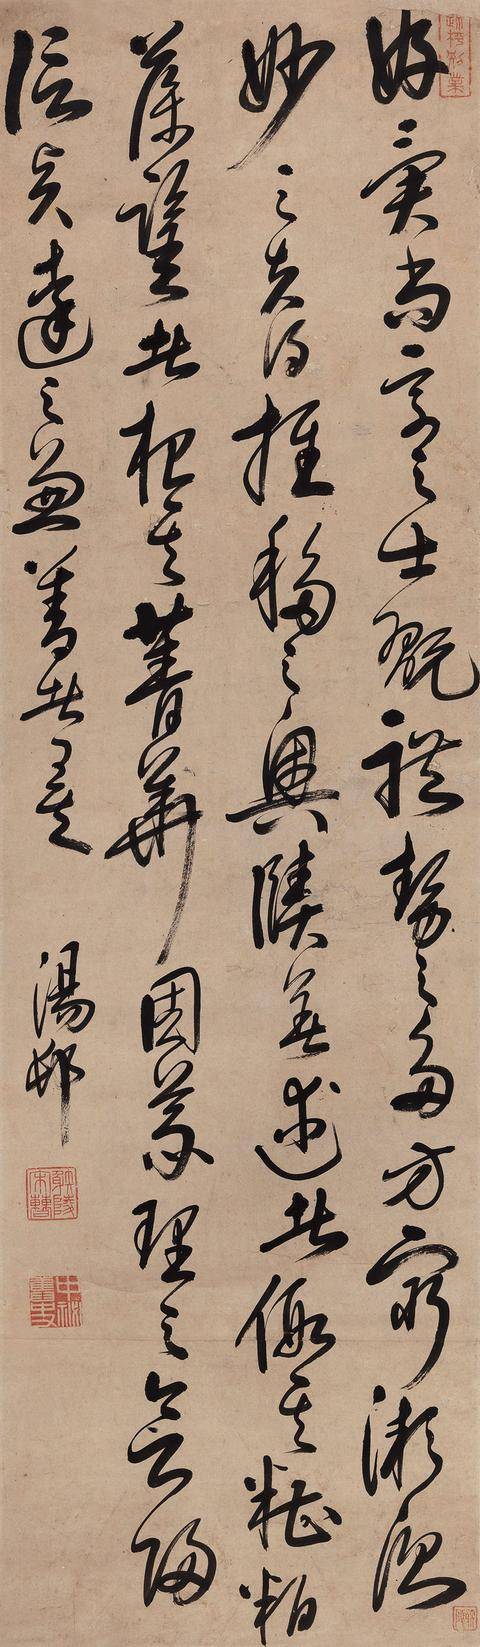 好異尚奇之士翫體勢之多方窮微測
妙之夫得推移之奧賾著述者假其糟粕
藻鑒者挹其菁華固義理之會歸
信賢達之兼善者矣
湯邨
射陵宋曹